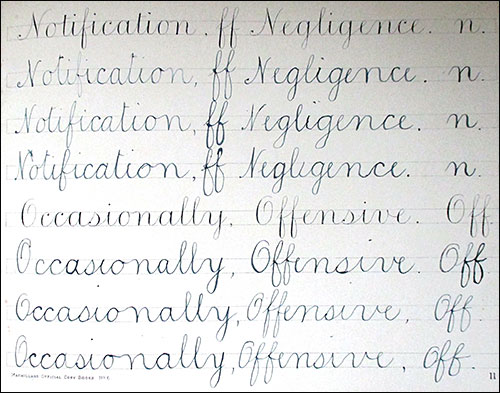 Notification. ff Negligence. n.
Notification, ff Negligence. n.
Notification, ff Negligence. n.
Notification, ff Negligence. n.
Occasionally. Offensive. Off.
Occasionally, Offensive. Off
Occasionally, Offensive, Off.
Occasionally, Offensive, Off.
Macmillans Official Copy Books. No 6 11